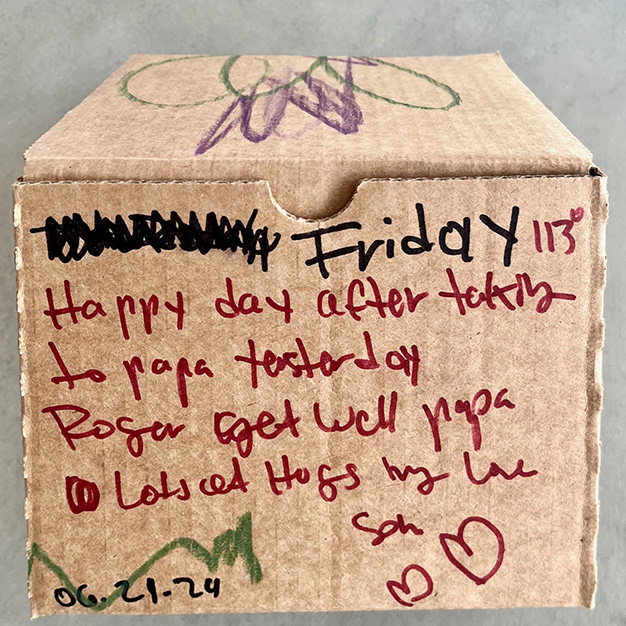 Friday 113°
Happy day after talking
to papa yesterday
Roger get well papa
Lots of Hugs my Love
Son
06.21.24